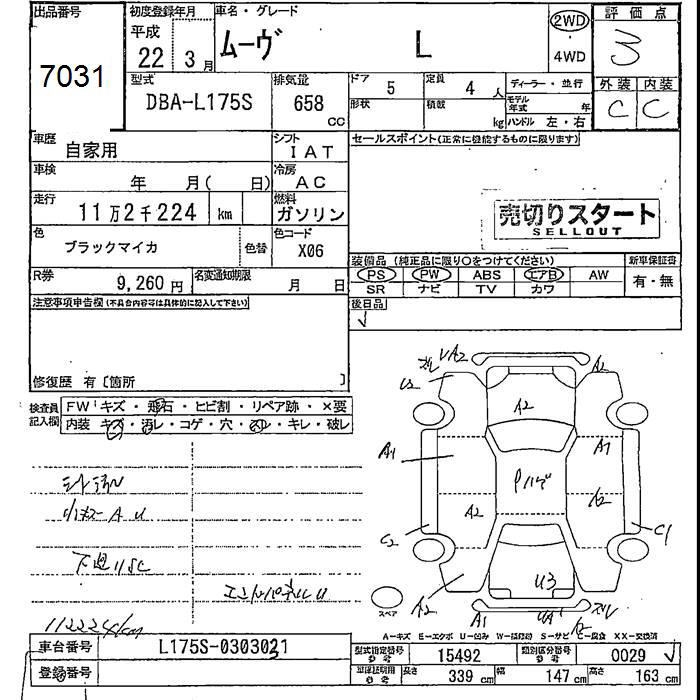 出品番号 初度登録年月 車名・グレード 2WD 評価点
7031 平成 22年 3月 ムーヴ L 4WD 3
型式 排気量 ドア 5 定員 4人 ディーラー・並行 外装 内装
DBA-L175S 658 cc 形状 積載 kg モデル年式 年 ハンドル 左・右 C C
車歴 自家用 シフト IAT セールスポイント(正常に機能するものに限ります)
車検 年 月( 日) 冷房 AC
走行 11万2千224 km 燃料 ガソリン 売切りスタート
SELLOUT
色 ブラックマイカ 色替 色コード X06
装備品 (純正品に限り〇をつけてください) 新車保証書
R券 9,260円 名変通知期限 月 日 PS PW ABS エアB AW 有・無
SR ナビ TV カワ
注意事項申告欄(不具合内容等は具体的に記入して下さい) 後日品
修復歴 有〔箇所 〕
検査員 FW キズ・飛石・ヒビ割・リペア跡・×要
記入欄 内装 キズ・汚レ・コゲ・穴・スレ・キレ・破レ
ズレ UA2 A2
A2
A1 A1
A2 A2
C2 C1
U3
A2 A1 ズレ
スペア
A2
A-キズ E-エクボ U-凹み W-補修跡 S-サビ C-腐食 XX-交換済
車台番号 L175S-0303021 型式指定番号 参考 15492 類別区分番号 参考 0029
登録番号 参考 長さ 339 cm 幅 147 cm 高さ 163 cm